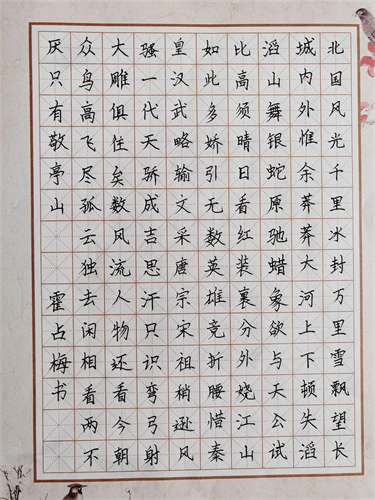 北国风光千里冰封万里雪飘望长
城内外惟余莽莽大河上下顿失滔
滔山舞银蛇原驰蜡象欲与天公试
比高须晴日看红装裹分外娆江山
如此多娇引无数英雄竞折腰惜秦
皇汉武略输文采唐宗宋祖稍逊风
骚一代天骄成吉思汗只识弯弓射
大雕俱往矣数风流人物还看今朝
众鸟高飞尽孤云独去闲相看两不
厌只有敬亭山
霍占梅书